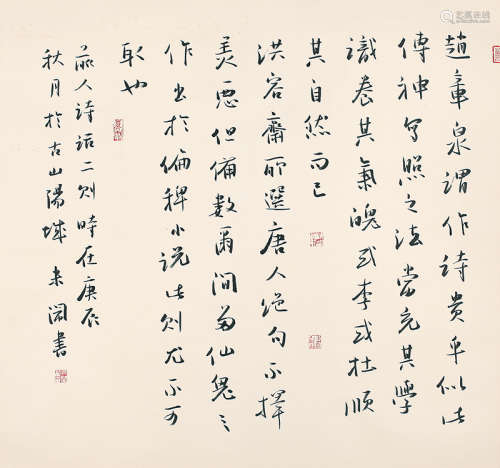 趙章泉謂作詩貴乎似此
傳神寫照之法當充其學
識養其氣魄或李或杜順
其自然而已
洪容齋所選唐人絕句不擇
美惡但備數爾間多仙鬼之
作出於偏稗小說此則尤不可
取也
前人詩話二則時在庚辰
秋月於古山陽城 未閣書